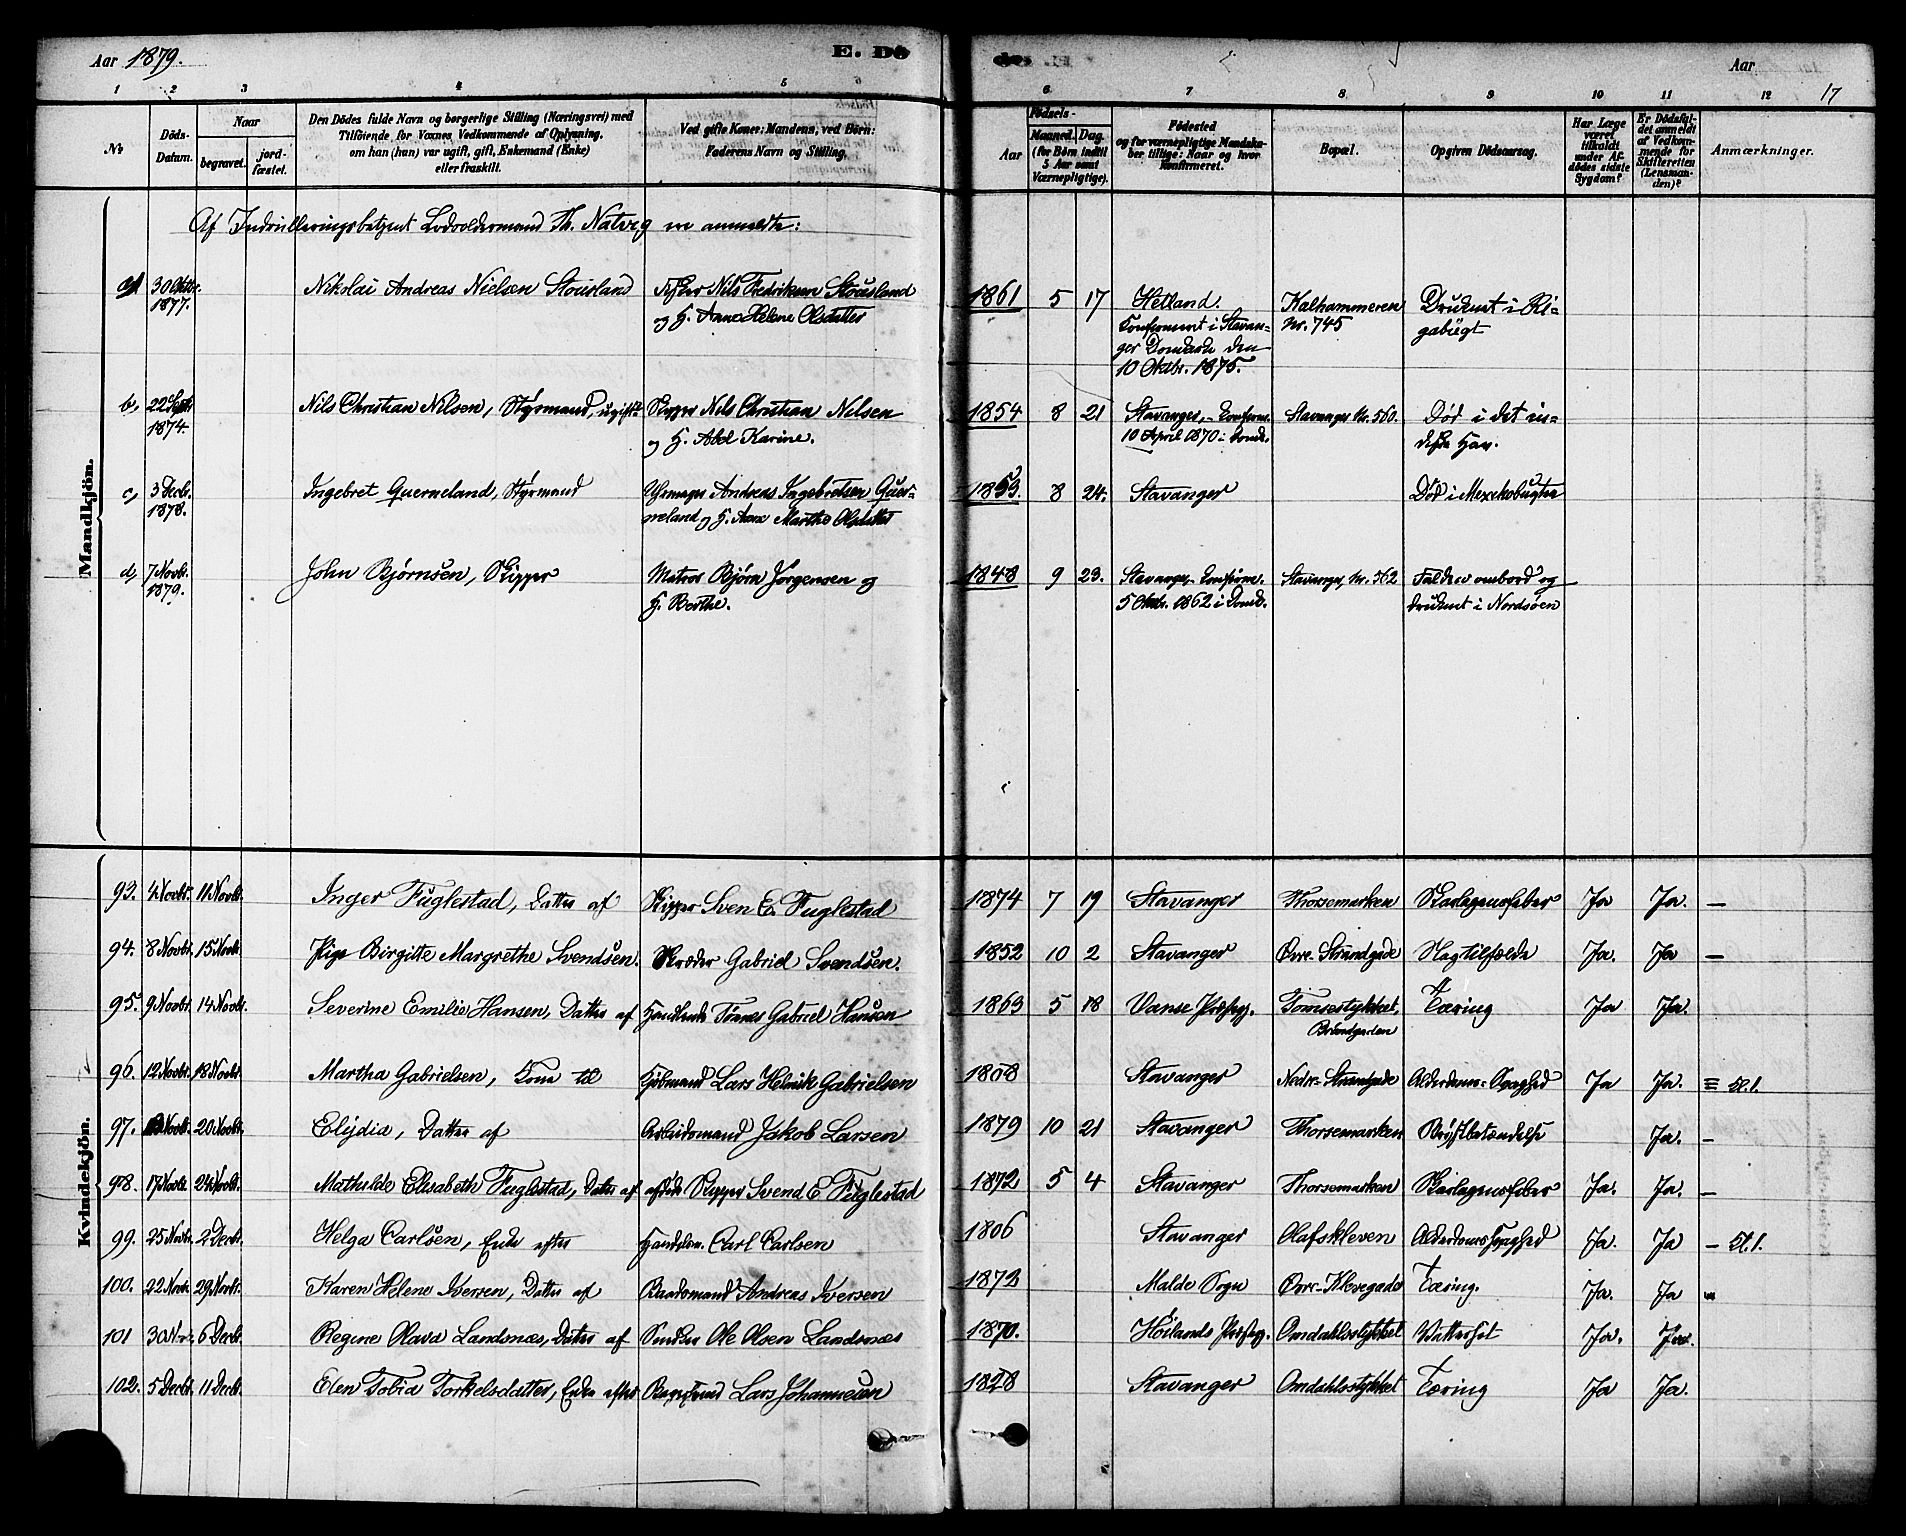 Aar 1879.
E. Dö
Aar
17
1 2 3 4 5 6 7 8 9 10 11 12
No
Döds-Datum.
Naar
begravet.
jord-fæstet.
Den Dödes fulde Navn og borgerlige Stilling (Næringsvei) med
Tilföiende for Voxnes Vedkommende af Oplysning,
om han (hun) var ugift, gift, Enkemand (Enke)
eller fraskilt.
Ved gifte Koner: Mandens, ved Börn:
Faderens Navn og Stilling.
Födsels-
Aar
Maaned. Dag.
(for Børn indtil
5 Aar samt
Værnepligtige).
Födested
og for værnepligtige Mandska-
ber tillige: Naar og hvor
Konfirmeret.
Bopæl.
Opgiven Dödsaarsag.
Har Læge
været
tilkaldt
under Af-
dödes sidste
Sygdom?
Er Dödsfal-
det anmeldt
af Vedkom-
mende for
Skifteretten
(Lensman-
den)?
Anmærkninger.
Mandkjön.
Af Indrulleringsbetjent Lodsoldermand Th. Natvig er anmeldte:
a, 30 Oktbr. 1877. Nikolai Andreas Nielsen Stousland
Nils Fredriksen Stousland
og H. Anne Helene Olsdatter
1861 5 17 Hetland.
Konfirmeret i Stavan-
ger Domkirke den
10 Oktbr. 1875.
Kalhammeren
Nr. 745
Druknet i Ri-
gabugt
b, 22 Septbr 1874. Nils Christian Nilsen, Styrmand, ugift
Skipper Nils Christian Nilsen
og H. Abel Karine.
1854 8 21 Stavanger, - Konfirm.
10 April 1870 i Domk.
Stavanger Nr. 560.
Død i det in-
diske Hav.
c, 3 Decbr. 1878. Ingebret Querneland, Styrmand
Uhrmager Andreas Ingebretsen Quer-
neland og H. Anne Marthe Olsdatter
1853 8 24. Stavanger Død i Mexekobugten
d, 7 Novbr. 1879. John Bjørnsen, Skipper
Matros Bjørn Jørgensen og
H. Berthe.
1848 9 23. Stavanger - Konfirm.
5 Oktbr. 1862 i Domk.
Stavanger, Nr. 362
Falden ombord og
druknet i Nordsøen
Kvindekjön.
93. 4 Novbr. 11 Novbr. Inger Fuglestad, Datter af Skipper Sven E. Fuglestad 1874 7 19 Stavanger Thorsemarken Skarlagensfeber Ja Ja. —
94. 8 Novbr. 15 Novbr. Pige Birgitte Margrethe Svendsen. Skræder Gabriel Svendsen. 1852 10 2 Stavanger Øvre Strandgade Slagtilfælde Ja. Ja —
95. 9 Novbr. 14 Novbr. Severine Emilie Hansen, Datter af Handlende Tønnes Gabriel Hansen 1863 5 18 Vanse Præstegj. Tomsestykket, Tæring Ja Ja.
96. 12 Novbr. 18 Novbr. Martha Gabrielsen, Kone til Kjøbmand Lars Helmik Gabrielsen 1808 Stavanger Nedre Strandgade Alderdoms-Svaghed Ja Ja.
97. Novbr. 20 Novbr. Elijdia, Datter af Arbeidsmand Jakob Larsen 1879 10 21 Stavanger Thorsemarken Brystbetændelse Ja. —
98. 17 Novbr. 24 Novbr. Mathilde Elisabeth Fuglestad, Datter af afdøde Skipper Svend E. Fuglestad 1872 5 4 Stavanger Thorsemarken Skarlagensfeber Ja. Ja. —
99. 25 Novbr. 2 Decbr. Helga Carlsen, Enke efter Handelsm. Carl Carlsen 1806 Stavanger Olafskleven Alderdomssvaghed Ja. Ja
100. 22 Novbr. 29 Novbr. Karen Helene Iversen, Datter af Baadsmand Andreas Iversen 1872 Malde Sogn Øvre-Klevegade Tæring. Ja. Ja
101 30 Nov. 6 Decbr. Regine Olava Landsnæs, Datter af Snedker Ole Olsen Landsnæs 1870. Høilands Præstegj. Omdahlsstykket Vattersot Ja. Ja.
102. 5 Decbr. 11 Decbr. Elen Tobia Torkelsdatter, Enke efter Lars Johannesen 1828 Stavanger Omdahlsstykket Tæring Ja Ja.